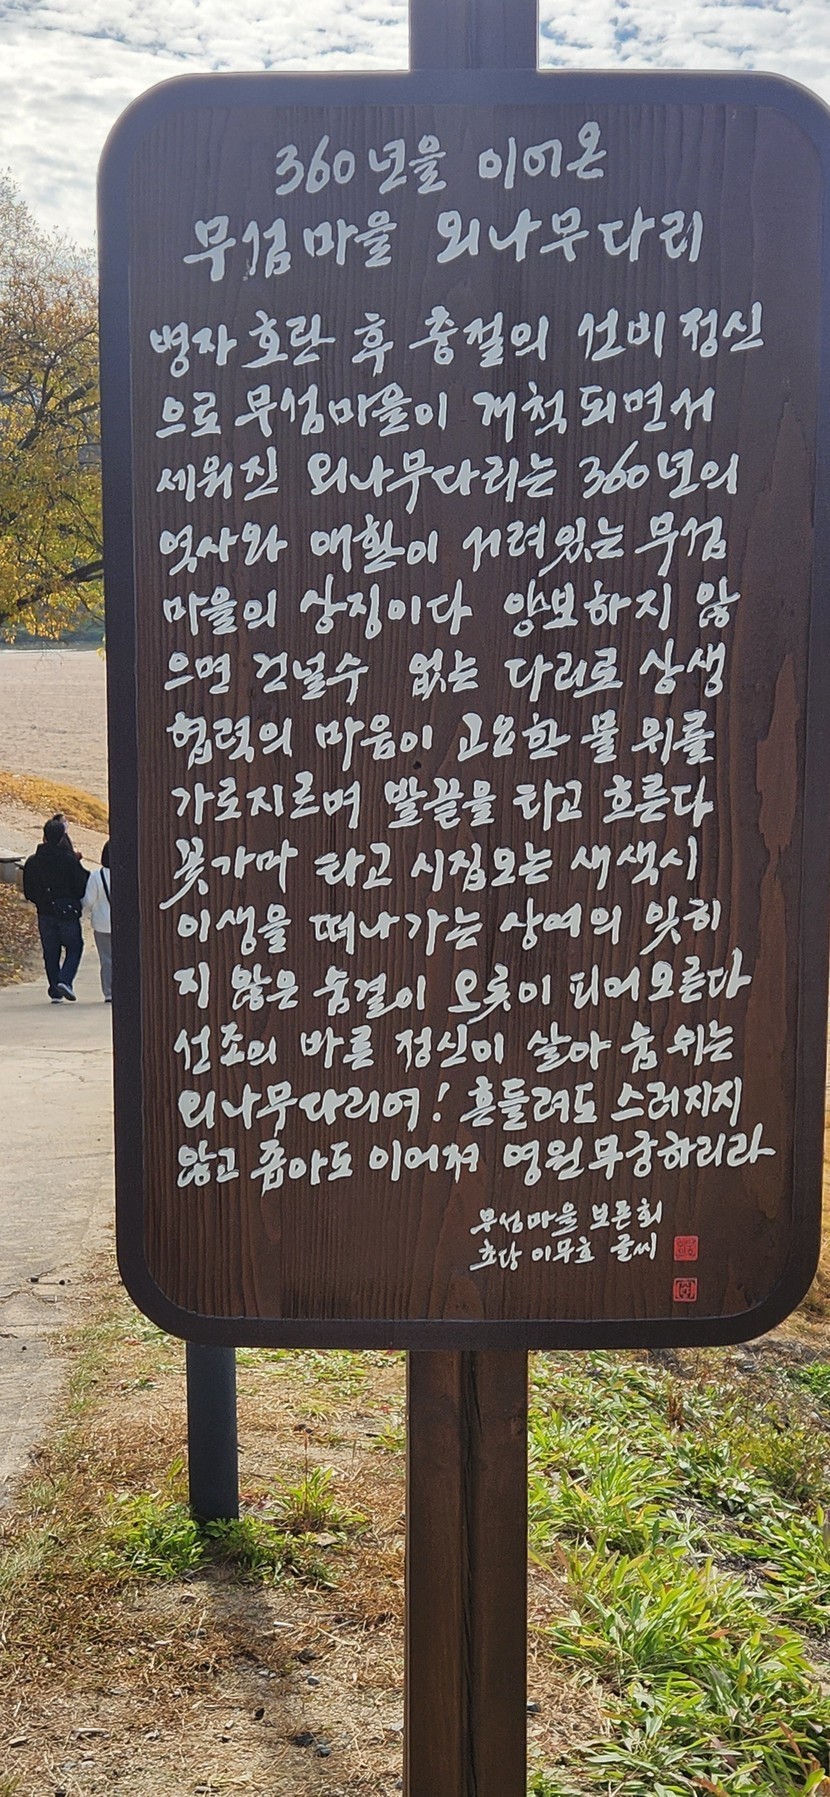 360년을 이어온
무섬마을 외나무다리
병자호란 후 충절의 선비정신
으로 무섬마을이 개척되면서
세워진 외나무다리는 360년의
역사와 애환이 서려있는 무섬
마을의 상징이다 양보하지 않
으면 건널수 없는 다리로 상생
협력의 마음이 고요한 물 위를
가로지르며 발끝을 타고 흐른다
꽃가마 타고 시집오는 새색시
이생을 떠나가는 상여의 잊히
지 않은 숨결이 오롯이 피어오른다
선조의 바른 정신이 살아 숨쉬는
외나무다리여! 흔들려도 스러지지
않고 좁아도 이어져 영원무궁하리라
무섬마을 보존회
초당 이무호 글씨